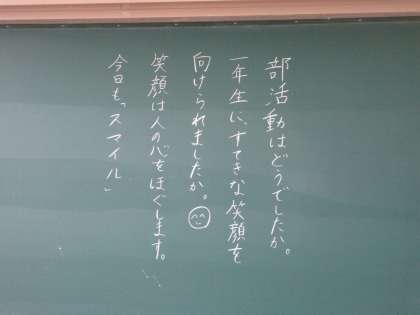 部活動はどうでしたか。
一年生に、すてきな笑顔を
向けられましたか。
笑顔は人の心をほぐします。
今日も「スマイル」